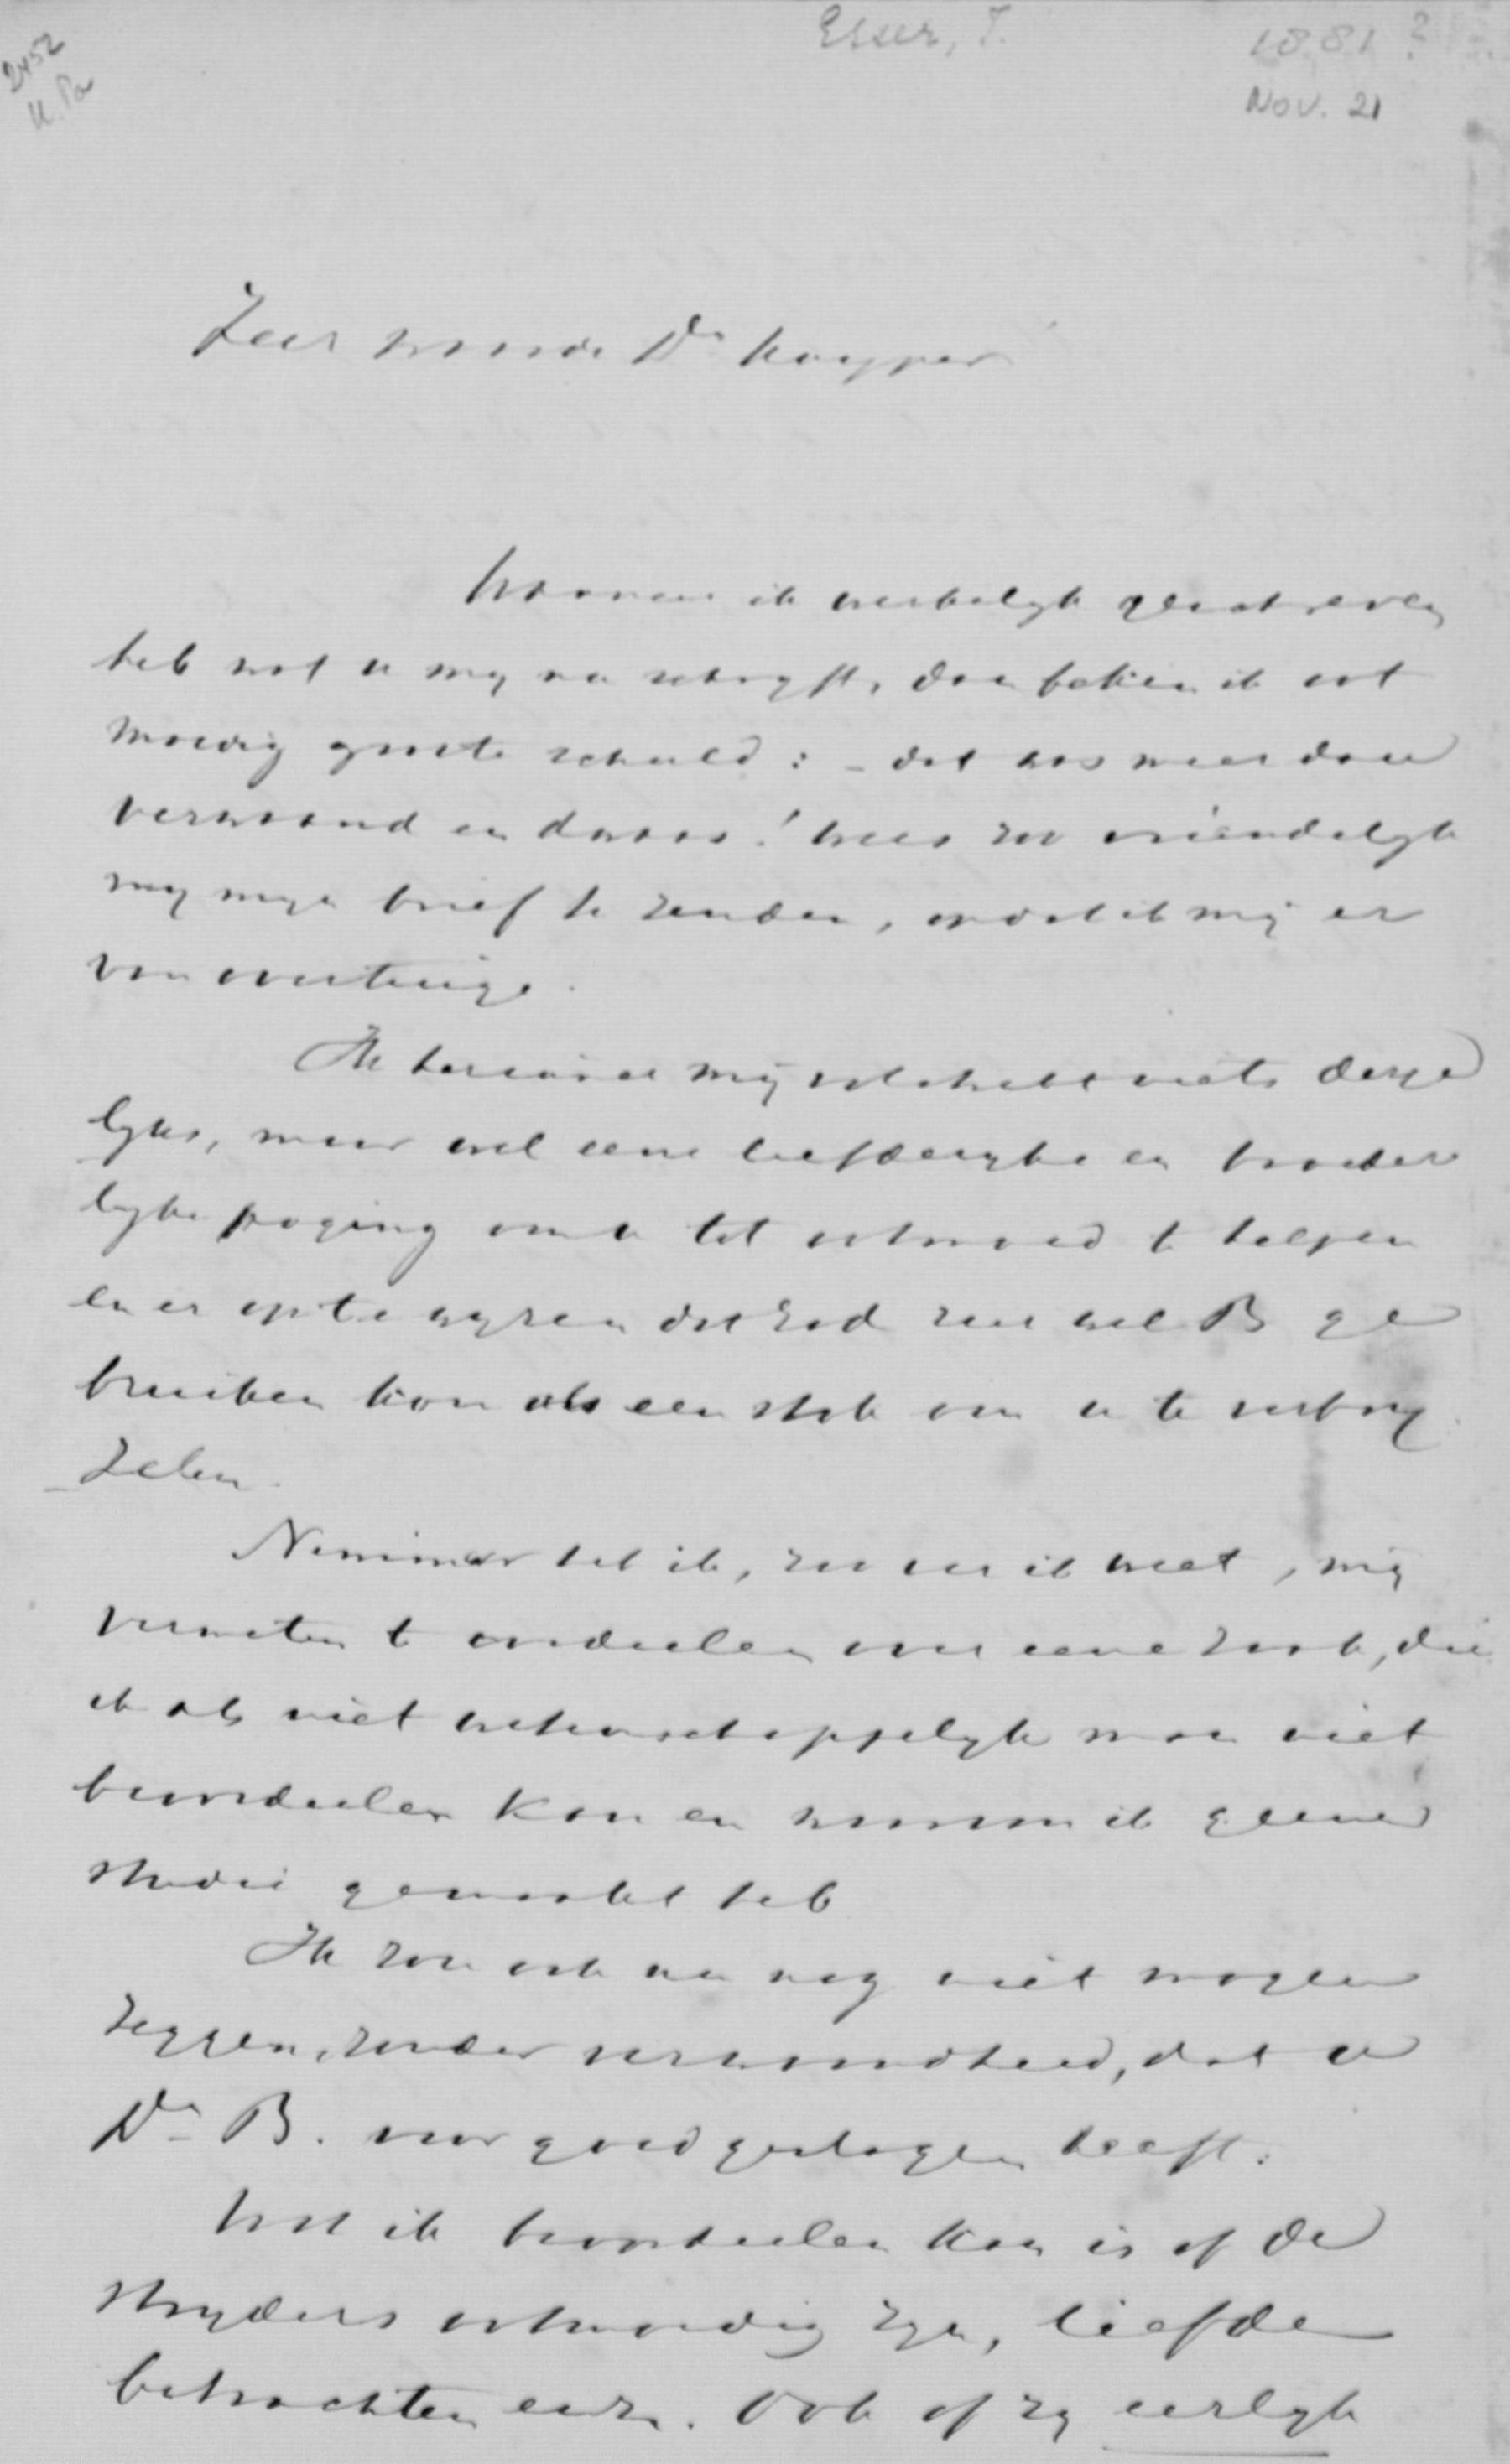 2452
Esser, I.
1881?
Nov. 21
Zeer waarde Dr Kuyper
Wanneer ik werkelyk geschreven
heb wat u my nu schryft, dan beken ik oot
moedig groote schuld: - dat was meer dan
verwaand en dwaas! Wees zoo vriendelyk
my myn brief te zenden, opdat ik mij er
van overtuige.
Ik herinner mij volstrekt niets derge
lyks, maar wel eene liefderyke en broeder
lyke poging om u tot ootmoed te helpen
en er op te wyzen dat God zeer wel B ge
bruiken kon als een stok om u te verbry
zelen.
Nimmer heb ik, zoo ver ik weet, mij
vermeten te oordeelen over eene zaak, die
ik als niet wetenschappelyk man niet
beoordeelen kan en waarvan ik geene
studie gemaakt heb
Ik zou ook nu nog niet mogen
zeggen, zonder verwaandheid, dat u
Dr B. voor goed geslagen heeft.
Wat ik beoordeelen kan is of de
stryders ootmoedig zyn, liefde
betrachten enz. Ook of zy eerlyk